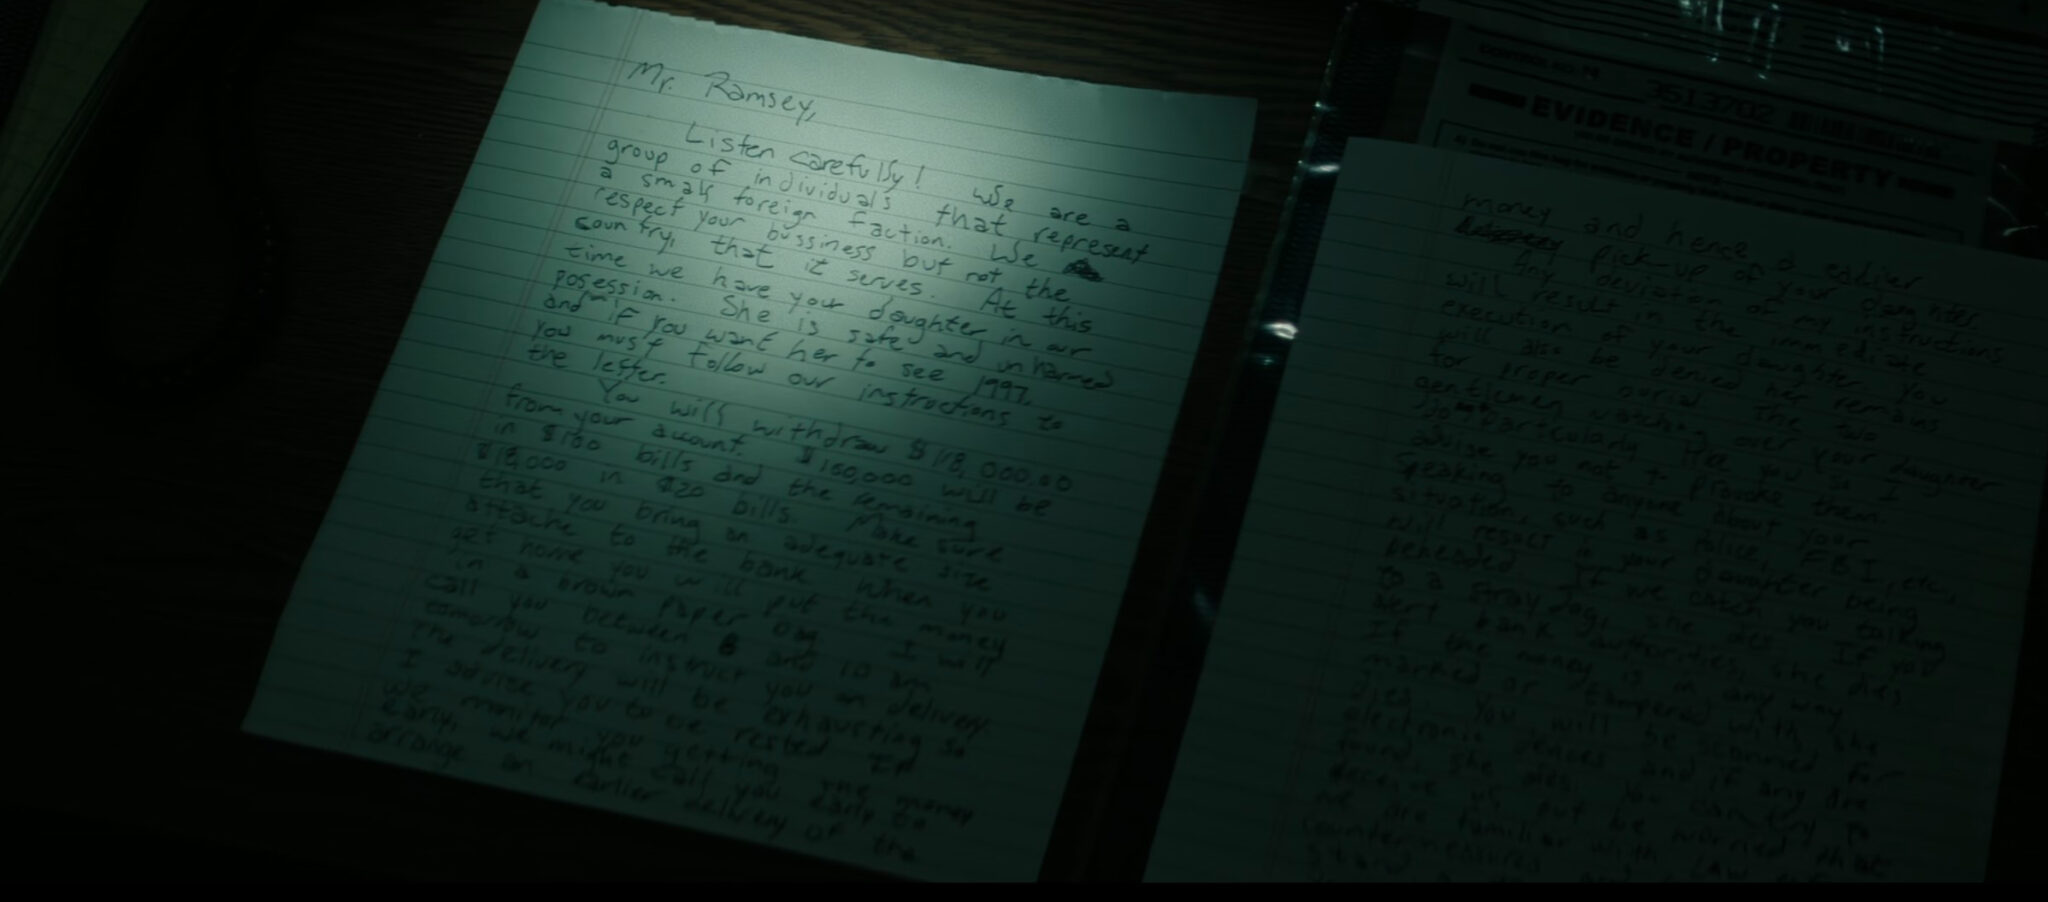 Mr. Ramsey,
Listen carefully! We are a
group of individuals that represent
a small foreign faction. We
respect your bussiness but not the
country, that it serves. At this
time we have your daughter in our
posession. She is safe and unharmed
and if you want her to see 1997,
you must follow our instructions to
the letter.
You will withdraw $118,000.00
from your account. $100,000 will be
in $100 bills and the remaining
$18,000 in $20 bills. Make sure
that you bring an adequate size
attache to the bank. When you
get home you will put the money
in a brown paper bag. I will
call you between 8 and 10 am
tomorrow to instruct you on delivery.
The delivery will be exhausting so
I advise you to be rested. If
we monitor you getting the money
early, we might call you early to
arrange an earlier delivery of the
3513702
EVIDENCE / PROPERTY
money and hence a earlier
pick-up of your daughter.
Any deviation of my instructions
will result in the immediate
execution of your daughter. You
will also be denied her remains
for proper burial. The two
gentlemen watching over your daughter
do not particularly like you so I
advise you not to provoke them.
Speaking to anyone about your
situation, such as Police, F.B.I., etc.,
will result in your daughter being
beheaded. If we catch you talking
to a stray dog, she dies. If you
alert bank authorities, she dies.
If the money is in any way
marked or tampered with, she
dies. You will be scanned for
electronic devices and if any are
found, she dies. You can try to
deceive us but be warned that
we are familiar with Law
countermeasures